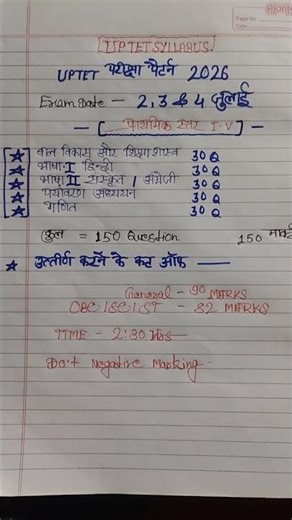 UPTET SYLLABUS
UPTET परीक्षा पैटर्न 2026
Exam date - 2, 3 & 4 जुलाई
[प्राथमिक स्तर I-V]
बाल विकास और शिक्षा शास्त्र 30 Q
भाषा-I हिन्दी 30 Q
भाषा II संस्कृत / अंग्रेजी 30 Q
पर्यावरण अध्ययन 30 Q
गणित 30 Q
कुल = 150 Question 150 मार्क
★ उत्तीर्ण करने के कट ऑफ —
General - 90 MARKS
OBC/SC/ST - 82 MARKS
TIME - 2:30 Hrs
Do't Negative Marking -